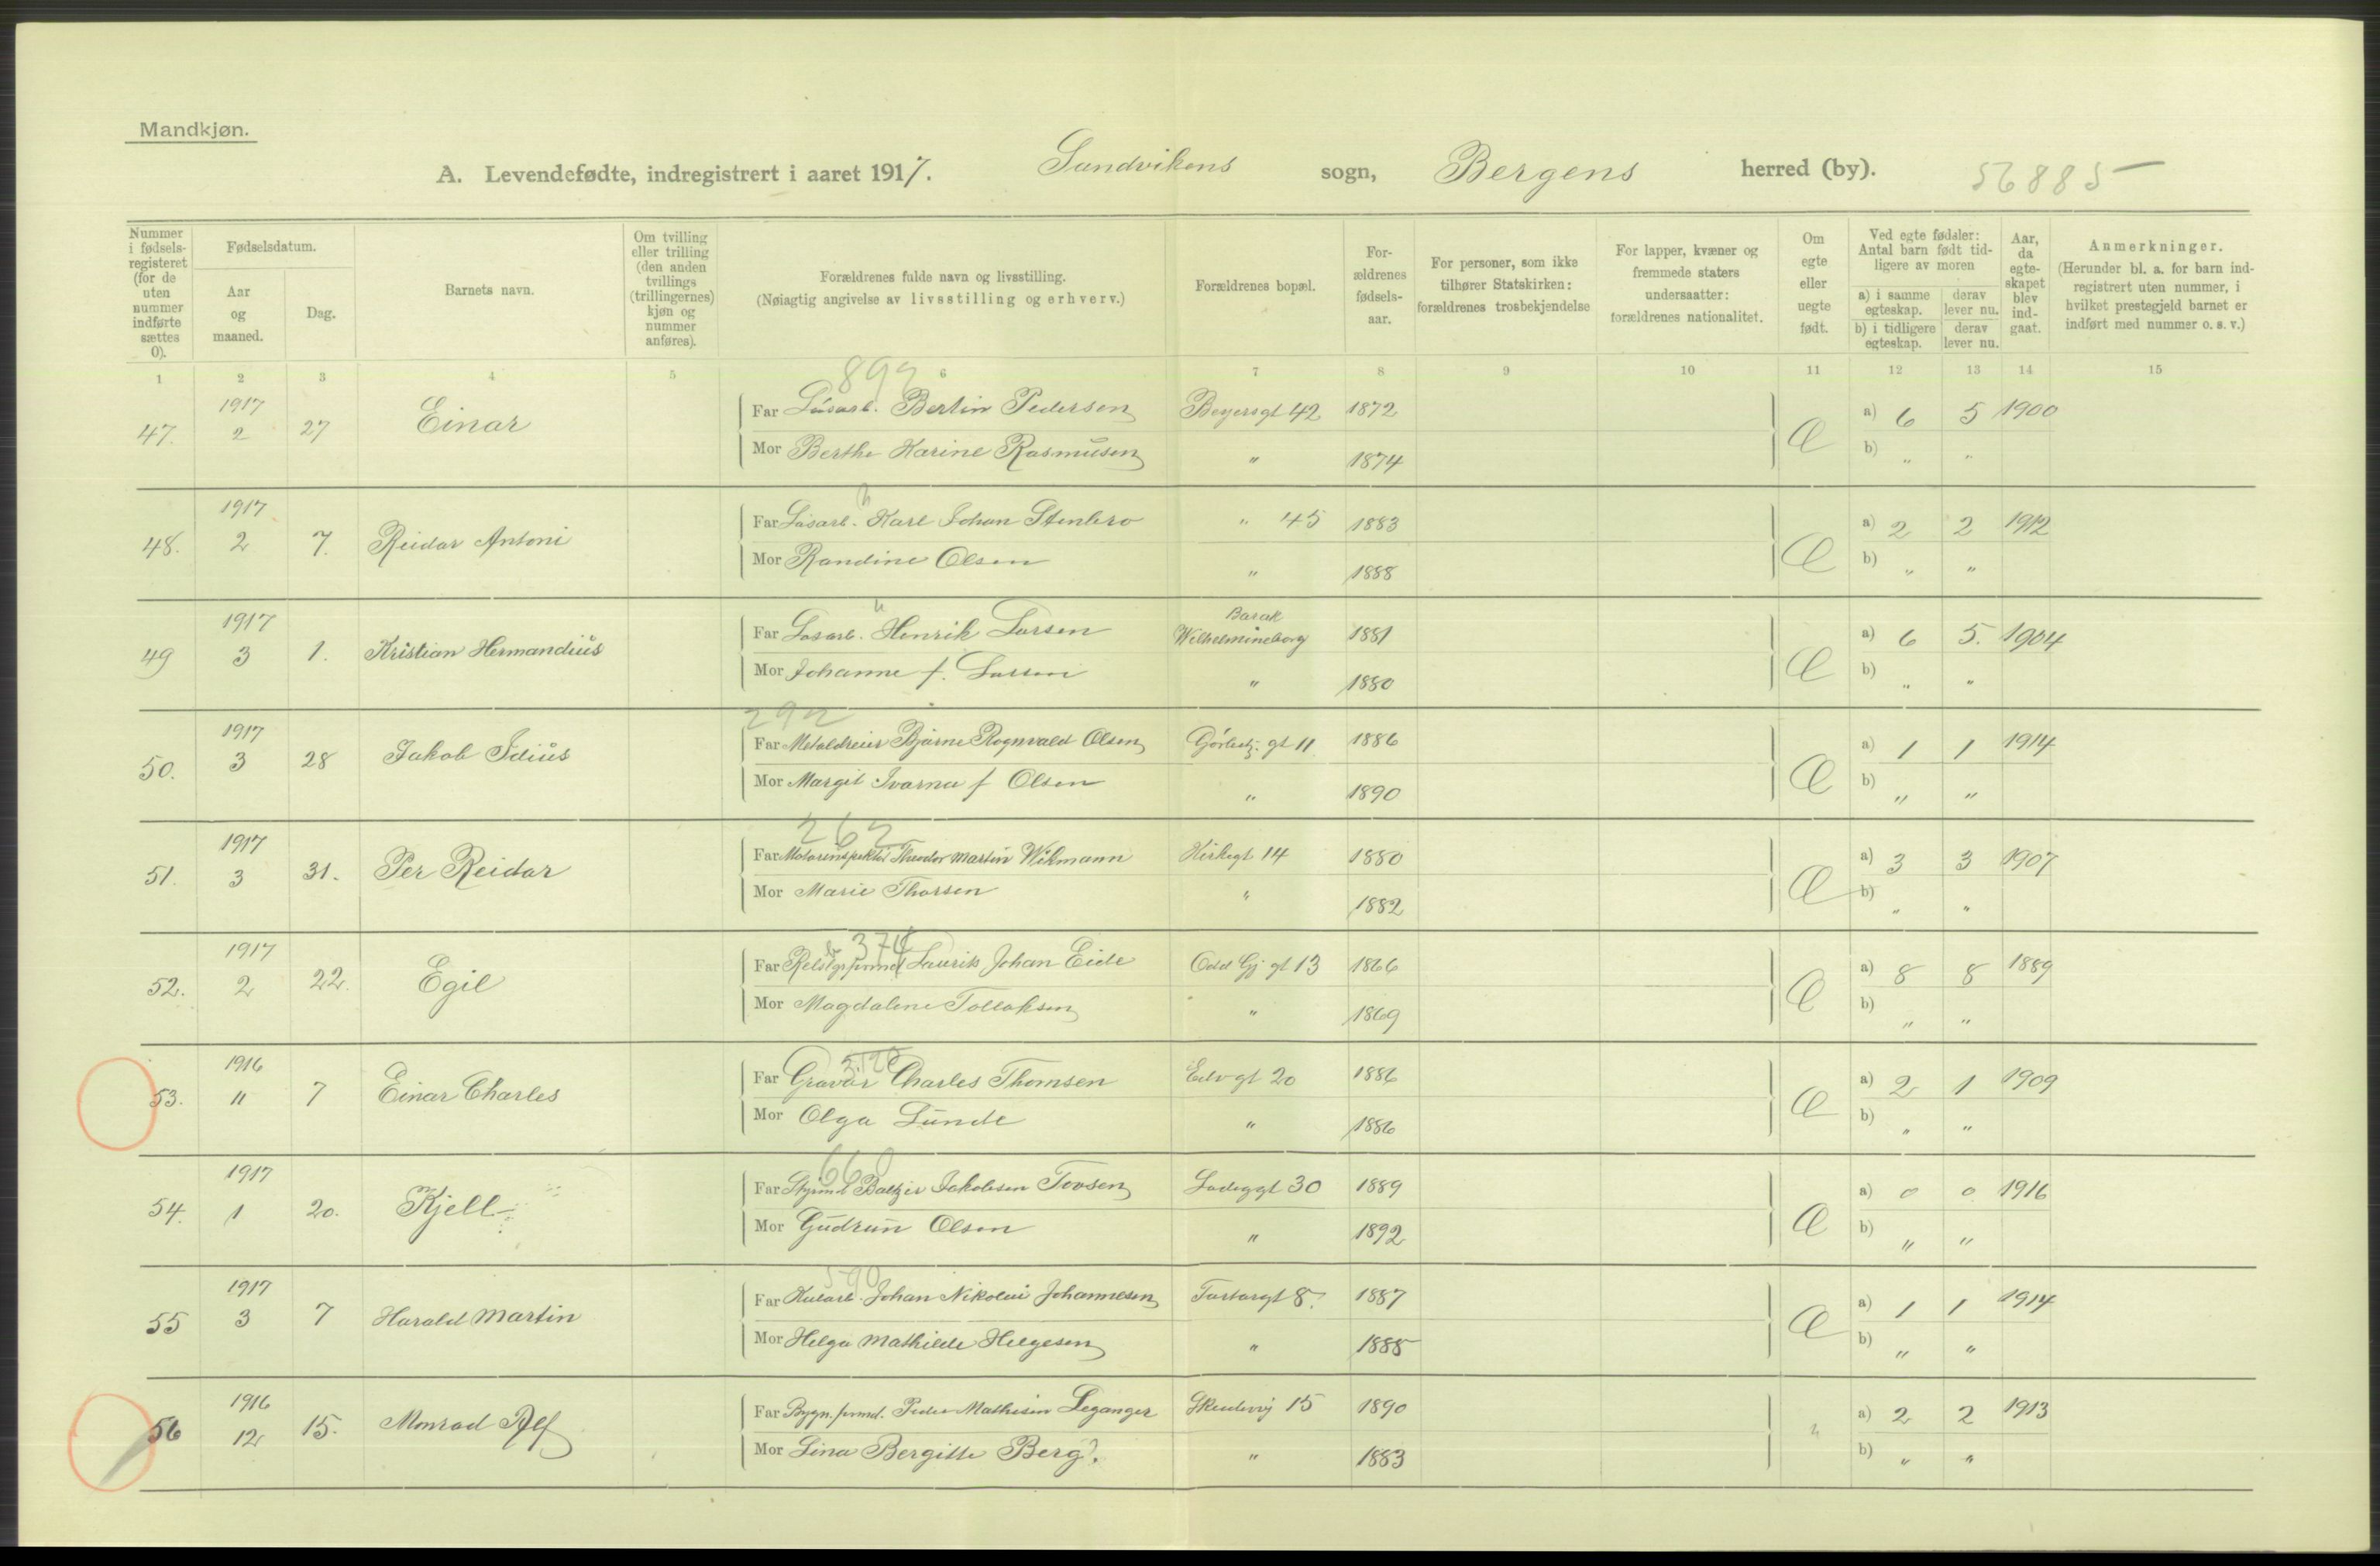 Mandkjøn.
A. Levendefødte, indregistrert i aaret 1917. Sandvikens sogn, Bergens herred (by). 56885
Nummer i fødsels-registeret (for de uten nummer indførte sættes 0).
Fødselsdatum.
Aar og maaned.
Dag.
Barnets navn.
Om tvilling eller trilling (den anden tvillings (trillingernes) kjøn og nummer anføres).
Forældrenes fulde navn og livsstilling.
(Nøiagtig angivelse av livsstilling og erhverv.)
Forældrenes bopæl.
For-ældrenes fødsels-aar.
For personer, som ikke tilhører Statskirken: forældrenes trosbekjendelse
For lapper, kvæner og fremmede staters undersaatter: forældrenes nationalitet.
Om egte eller uegte født.
Ved egte fødsler: Antal barn født tid-ligere av moren
a) i samme egteskap. derav lever nu.
b) i tidligere egteskap. derav lever nu.
Aar, da egte-skapet blev ind-gaat.
Anmerkninger.
(Herunder bl. a. for barn ind-registrert uten nummer, i hvilket prestegjeld barnet er indført med nummer o. s. v.)
1 2 3 4 5 6 7 8 9 10 11 12 13 14 15
47. 1917 2 27 Einar Far Løsarb. Bertin Pedersen Beyersgt 42 1872 a) 6 5 1900
Mor Berthe Karine Rasmussen " 1874 Æ b) " "
48. 1917 2 7. Reidar Antoni Far Løsarb. Karl Johan Stenbro " 45 1883 a) 2 2 1912
Mor Randine Olsen " 1888 Æ b) " "
49 1917 3 1. Kristian Hermandius Far Løsarb. Henrik Larsen Barak Wilhelmineborg 1881 a) 6 5. 1904
Mor Johanne f. Larsen " 1880 Æ b) " "
292
50. 1917 3 28 Jakob Idius Far Metaldreier Bjarne Rognvald Olsen gt 11 1886 a) 1 1 1914
Mor Margit Ivarna f Olsen " 1890 Æ b) " "
262
51. 1917 3 31. Per Reidar Far Motorinspektør Theodor Martin Wikmann Kirkegt 14 1880 a) 3 3 1907
Mor Marie Thorsen " 1882 Æ b) " "
52. 1917 2 22. Egil Far Laurits Johan Eide Odd Gj gt 13 1866 a) 8 8 1889
Mor Magdalene Tollaksen " 1869 Æ b) " "
53. 1916 11 7 Einar Charles Far Gravør Charles Thomsen Edvgt 20 1886 a) 2 1 1909
Mor Olga Lunde " 1886 Æ b) " "
660
54. 1917 1 20. Kjell Far Styrmd Baltzer Jakobsen Tovsen Ladeggt 30 1889 a) 0 0 1916
Mor Gudrun Olsen " 1892 Æ b) " "
590
55 1917 3 7 Harald Martin Far Johan Nikolai Johannesen Tartargt 8. 1887 a) 1 1 1914
Mor Helga Mathilde Helgesen " 1885 Æ b) " "
56 1916 12 15. Monrad Alf Far Bygn.formd. Peder Mathisen Leganger Skudevij 15 1890 a) 2 2 1913
Mor Lina Bergitte Berg. " 1883 b) " "